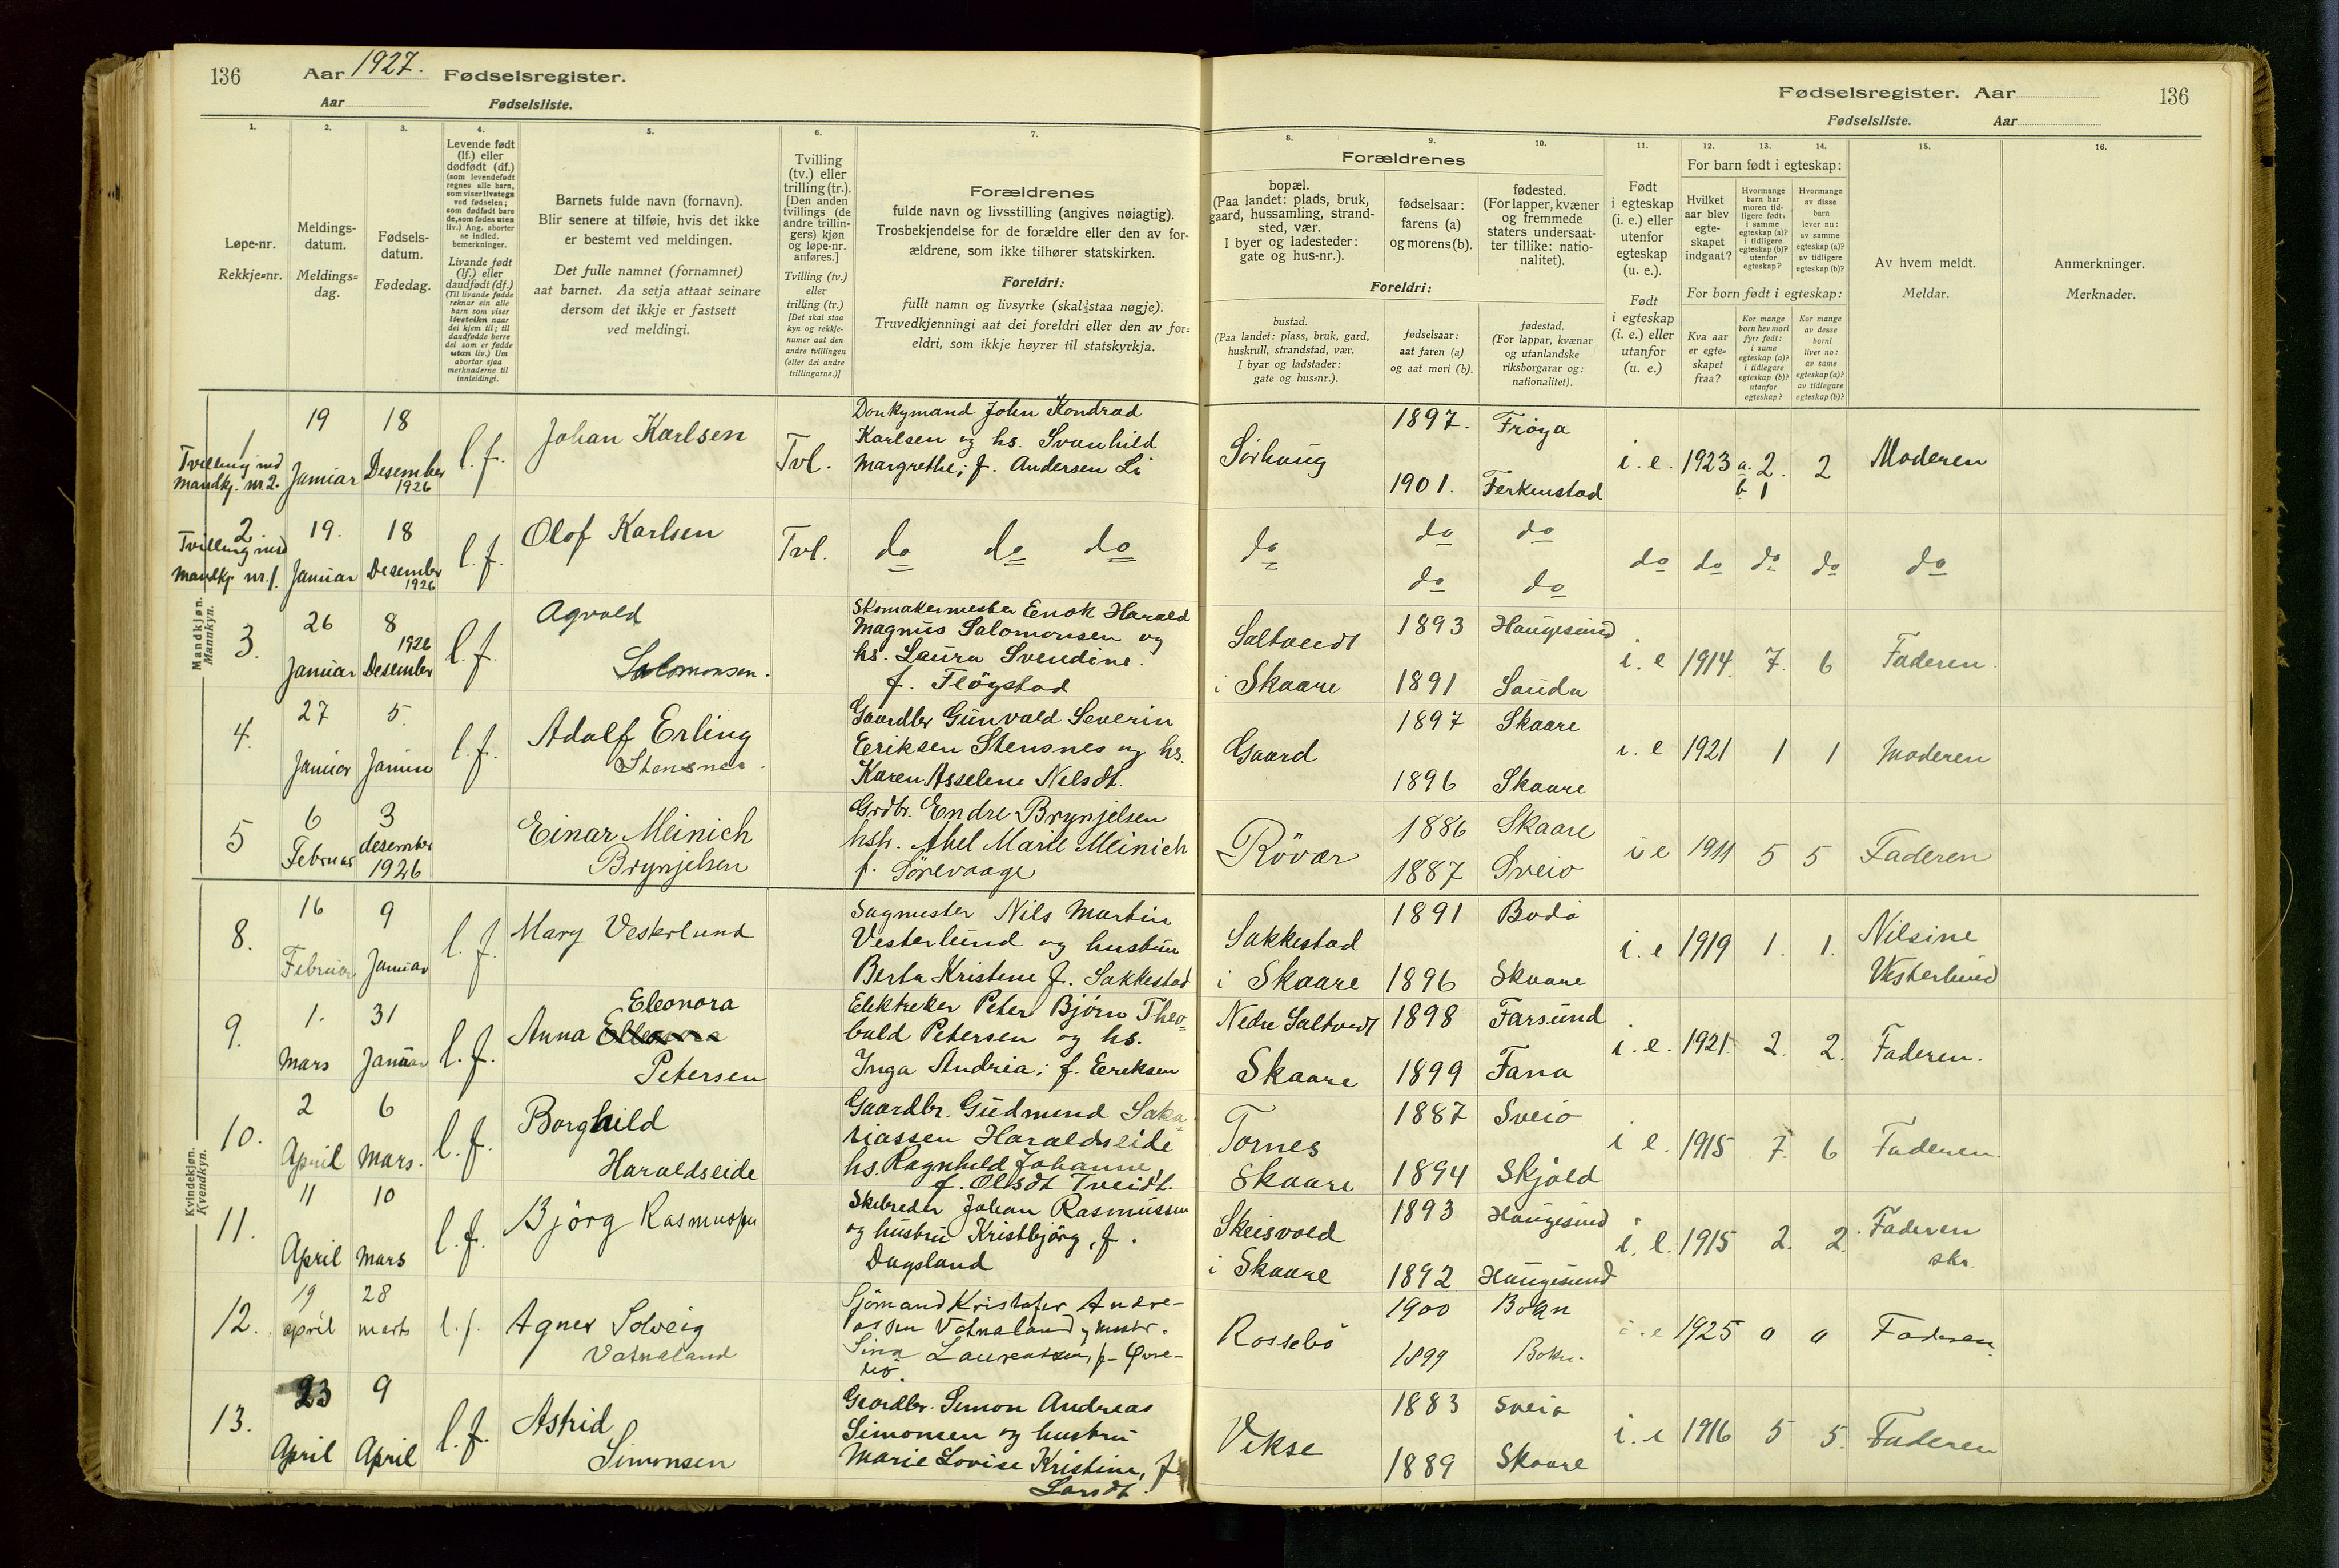 136
Aar 1927. Fødselsregister.
Aar Fødselsliste.
Fødselsregister. Aar
136
Fødselsliste. Aar
1. 2. 3. 4. 5. 6. 7. 8. 9. 10. 11. 12. 13. 14. 15. 16.
Løpe-nr.
Rekkje=nr.
Meldings-
datum.
Meldings=
dag.
Fødsels-
datum.
Fødedag.
Levende født
(lf.) eller
dødfødt (df.)
(som levendefødt
regnes alle barn,
som viser livstegn
ved fødselen;
som dødfødt bare
de, som fødes uten
liv.) Ang. aborter
se indled.
bemerkninger.
Livande født
(lf.) eller
daudfødt (df.)
(Til livande fødde
reknar ein alle
barn som viser
livsteikn naar
dei kjem til; til
daudfødde berre
dei som er fødde
utan liv.) Um
abortar sjaa
merknaderne til
innleidingi.
Barnets fulde navn (fornavn).
Blir senere at tilføie, hvis det ikke
er bestemt ved meldingen.
Det fulle namnet (fornamnet)
aat barnet. Aa setja attaat seinare
dersom det ikkje er fastsett
ved meldingi.
Tvilling
(tv.) eller
trilling (tr.).
[Den anden
tvillings (de
andre trillin-
gers) kjøn
og løpe-nr.
anføres.]
Tvilling (tv.)
eller
trilling (tr.)
[Det skal staa
kyn og rekkje-
numer aat den
andre tvillingen
(eller dei andre
trillingarne.)]
Forældrenes
fulde navn og livsstilling (angives nøiagtig).
Trosbekjendelse for de forældre eller den av for-
ældrene, som ikke tilhører statskirken.
Foreldri:
fullt namn og livsyrke (skal staa nøgje).
Truvedkjenningi aat dei foreldri eller den av for=
eldri, som ikkje høyrer til statskyrkja.
Forældrenes
bopæl.
(Paa landet: plads, bruk,
gaard, hussamling, strand-
sted, vær.
I byer og ladesteder:
gate og hus-nr.).
fødselsaar:
farens (a)
og morens (b).
fødested.
(For lapper, kvæner
og fremmede
staters undersaat-
ter tillike: natio-
nalitet).
Foreldri:
bustad.
(Paa landet: plass, bruk, gard,
huskrull, strandstad, vær.
I byar og ladstader:
gate og hus=nr.).
fødselsaar:
aat faren (a)
og aat mori (b).
fødestad.
(For lappar, kvænar
og utanlandske
riksborgarar og:
nationalitet).
Født
i egteskap
(i. e.) eller
utenfor
egteskap
(u. e.).
Født
i egteskap
(i. e.) eller
utanfor
(u. e.)
For barn født i egteskap:
Hvilket
aar blev
egte-
skapet
indgaat?
Hvormange
barn har
moren tid-
ligere født:
i samme
egteskap (a)?
i tidligere
egteskap (b)?
utenfor
egteskap?
Hvormange
av disse
barn
lever nu:
av samme
egteskap (a)?
av tidligere
egteskap (b)?
For born født i egteskap:
Kva aar
er egte=
skapet
fraa?
Kor mange
born hev mori
fyrr født:
i same
egteskap (a)?
i tidlegare
egteskap (b)?
utanfor
egteskap?
Kor mange
av desse
borni
liver no:
av same
egteskap (a)?
av tidlegare
egteskap (b)?
Av hvem meldt.
Meldar.
Anmerkninger.
Merknader.
Mandkjøn.
Mannkyn.
1
Tvilling med
Mandkj. nr 2.
19
Januar
18
Desember
1926
l. f.
Johan Karlsen
Tvl.
Donkymand John Kondrad
Karlsen og hs. Svanhild
Margrethe, f. Andersen Li
Sørhaug
1897. Frøya
1901. Ferkenstad
i. e. 1923 a. 2. 2 Moderen
b. 1
2
Tvilling med
Mandkj. nr. 1.
19.
Januar
18
Desember
1926
l. f.
Olof Karlsen
Tvl.
do do do
do
do do
do do
do do do do do
3.
26
Januar
8
1926
Desember
l. f.
Agvald
Salomonsen.
Skomakermester Enok Harald
Magnus Salomonsen og
hs. Laura Svendine.
f. Fløgstad
Saltvedt
i Skaare
1893 Haugesund
1891 Sauda
i. e 1914 7. 6 Faderen.
4.
27
Januar
5.
Januar
l. f.
Adolf Erling
Stensnes.
Gaardbr Gunvald Severin
Eeriksen Stensnes og hs.
Karen Asselene Nelsdt.
Gaard
1897 Skaare
1896 Skaare
i. e 1921 1 1 Moderen
5
6
Februar
3
desember
1926
Einar Meinich
Brynjelsen
Grdbr. Endre Brynjelsen
hsh. Abel Marie Meinich
f. Sørevaage
Røvær
1886 Skaare
1887 Sveio
i e 1911 5 5 Faderen
Kvindekjøn.
Kvendkyn.
8.
16
Februar
9
Januar
l. f.
Mary Vesterlund
Sagmester Nils Martin
Vesterlund og hustru
Berta Kristine f. Sakkestad
Sakkestad
i Skaare
1891 Bodø
1896 Skaare
i. e 1919 1. 1. Nilsine
Vesterlund
9.
1.
Mars
31
Januar
l. f.
Eleonora
Anna
Petersen
Elektreker Peter Bjørn Theo-
bald Petersen og hs.
Inga Andrea; f. Eereksen
Nedre Saltvedt
Skaare
1898 Farsund
1899 Fana
i. e. 1921. 2. 2. Faderen.
10.
2
April
6
Mars.
l. f.
Borghild
Haraldseide
Gaardbr. Gudmund Saka-
riassen Haraldseide
hs. Ragnhild Johanne,
f. Olsdt Tveidt.
Tornes
Skaare
1887 Sveio
1894 Skjold
i e. 1915 7. 6 Faderen.
11.
11
April
10
Mars
l. f.
Bjørg Rasmussen
Skibreder Johan Rasmussen
og hustru Kristbjørg, f.
Dagsland
Skeisvold
i Skaare
1893 Haugesund
1892 Haugesund
i. e. 1915 2. 2. Faderen
skr.
12.
19
april
28
marts
l. f.
Agnes Solveig
Vatnaland
Sjømand Kristofer Andre-
assen Vatnaland og hustr.
Sina Laurentsen, f. Øvre-
bø.
Rossebø
1900 Bokn
1899 Bokn.
i. e 1925 0 0 Faderen.
13.
23
April
9
April
l. f.
Astrid
Simonsen
Gaardbr. Simon Andreas
Simonsen og hustru
Marie Lovise Kristine, f.
Larsdt.
Vikse
1883 Sveio
1889 Skaare
i. e 1916 5 5. Faderen